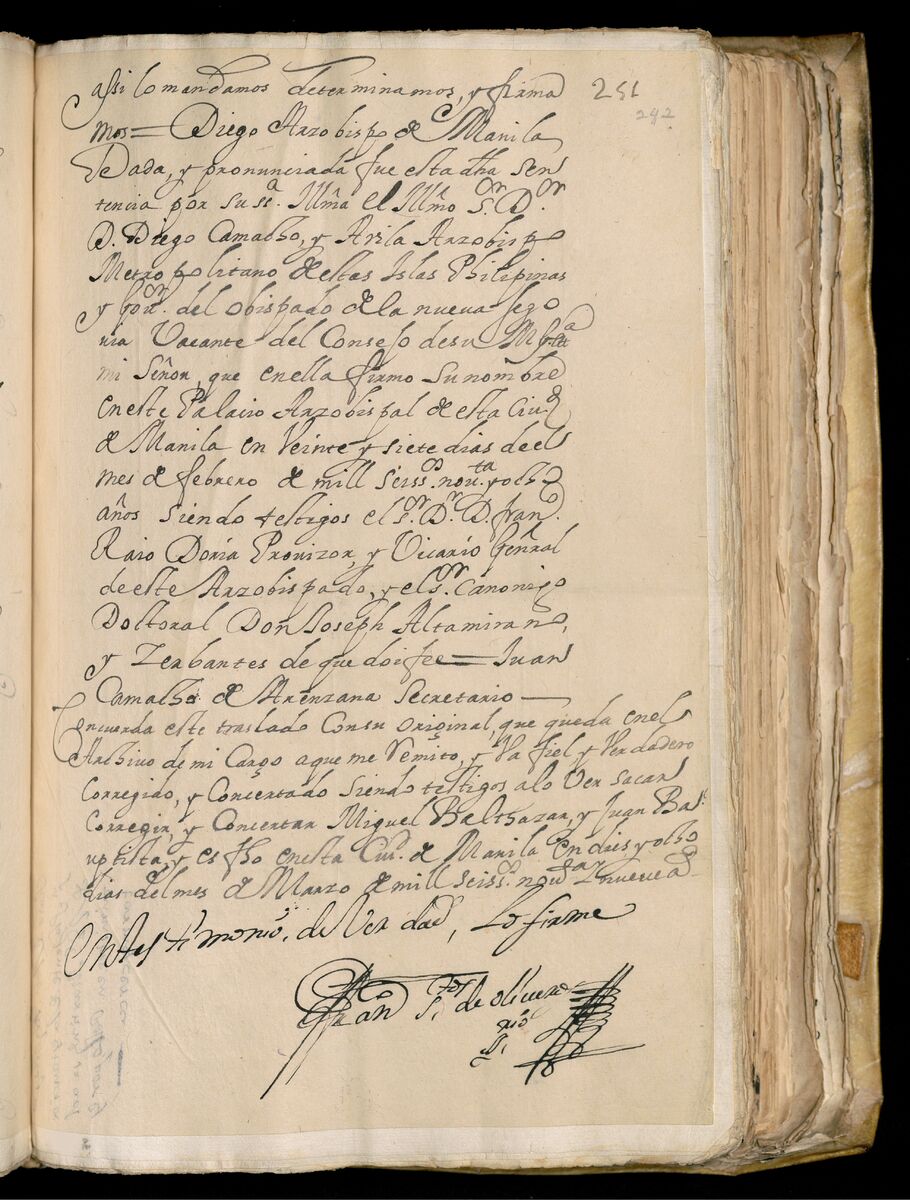 assi lo mandamos determinamos, y firma
251
292
mos = Diego Arzobispo de Manila
Dada, y pronunciada fue esta dha sen
tencia por su sa. Illma el Illmo Sor. Dor.
D. Diego Camacho, y Avila Arzobispo
Metropolitano de estas Islas Philipinas
y Gor. del obispado de la nueva sego
via Vacante del Consejo de su Magd
mi Señor, que en ella firmo su nombre
en este Palacio Arzobispal de esta Ciud
de Manila en Veinte y siete dias de el
mes de febrero de mill seissos. nouta y ocho
años siendo testigos el sor. Dor. D. franco.
Raio Doria Provizor, y Vicario Genral
de este Arzobispado, y el sor. Canonigo
Doctoral Don Joseph Altamirano,
y Zerbantes de que doi fee = Juan
Camacho de Arenzana Secretario —
Concuerda este traslado Con su original, que queda en el
Archivo de mi Cargo a que me Remito, y Va fiel y Verdadero
Corregido, y Concertado siendo testigos a lo Ver sacar
Corregir, y Concertar Miguel Balthazar, y Juan Ba
uptista, y es fho en esta Ciud. de Manila en dies y ocho
dias del mes de Marzo de mill seissos. nouta y nueve as
En testimonio. de Verdad, Lo firme
Franco de olivera